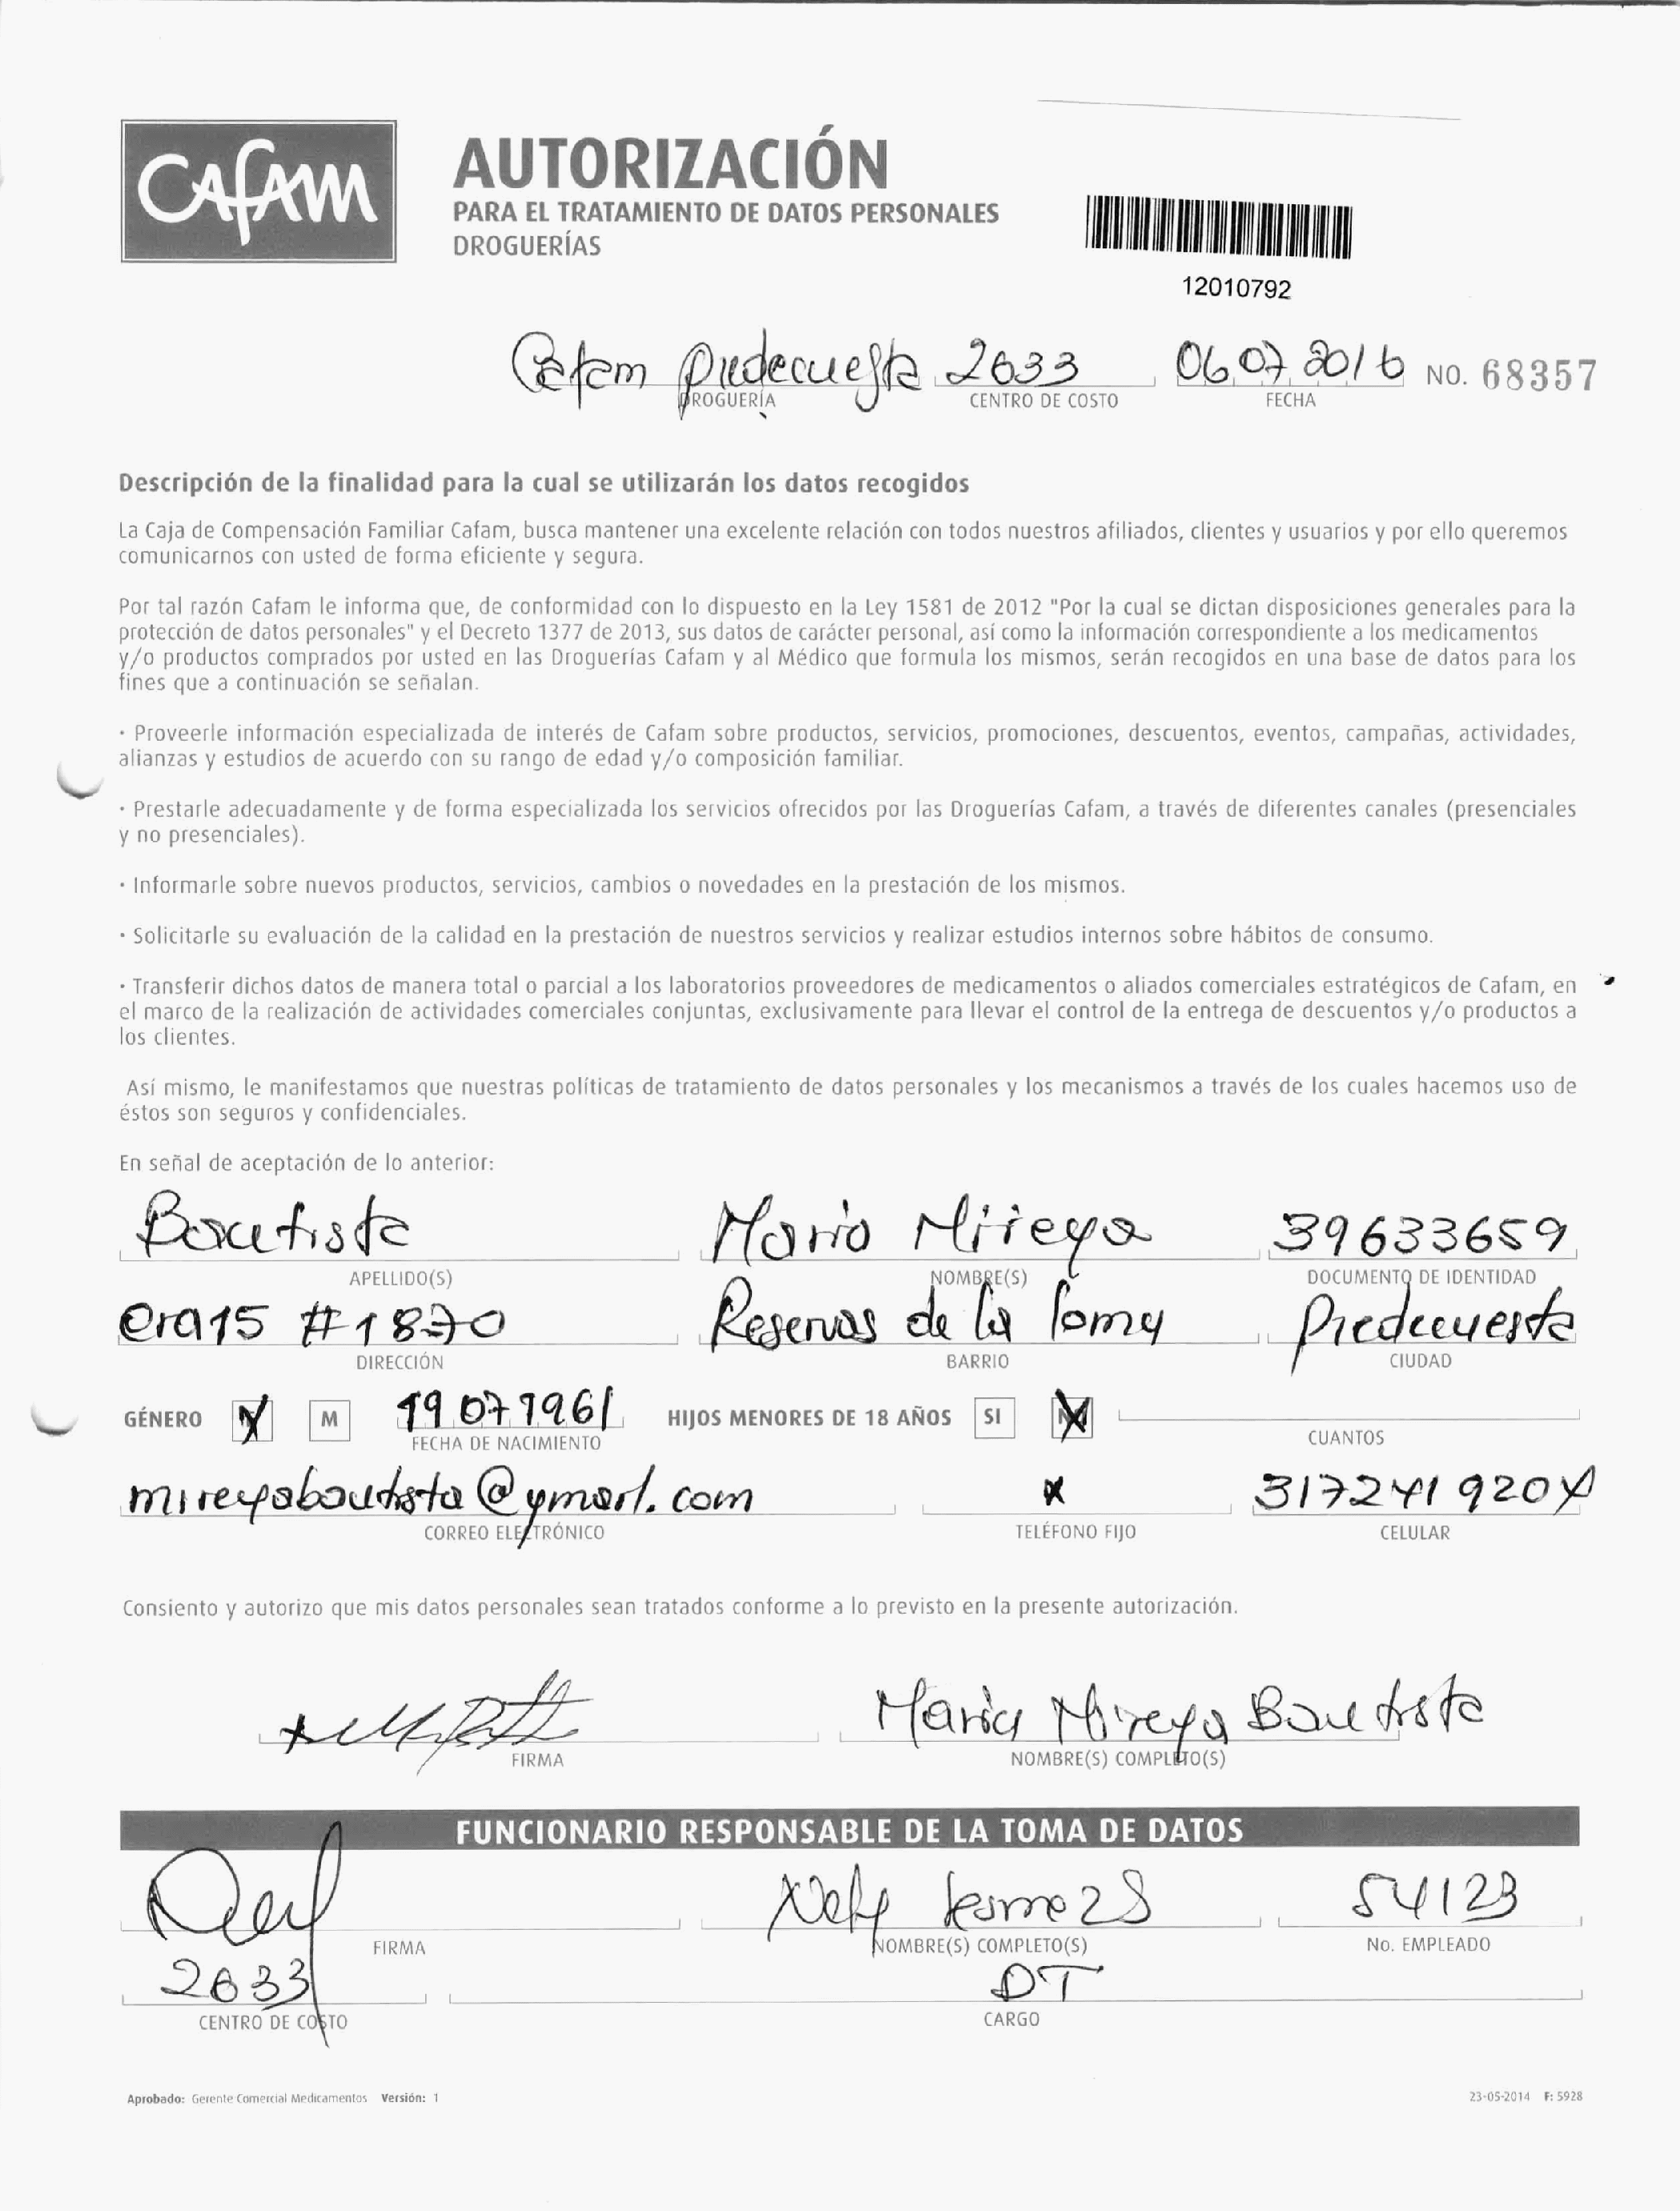 CAFAM
AUTORIZACIÓN
PARA EL TRATAMIENTO DE DATOS PERSONALES
DROGUERÍAS
12010792
Cafam Piedecuesta 2633 06 07 2016 NO. 68357
DROGUERÍA CENTRO DE COSTO FECHA
Descripción de la finalidad para la cual se utilizarán los datos recogidos
La Caja de Compensación Familiar Cafam, busca mantener una excelente relación con todos nuestros afiliados, clientes y usuarios y por ello queremos
comunicarnos con usted de forma eficiente y segura.
Por tal razón Cafam le informa que, de conformidad con lo dispuesto en la Ley 1581 de 2012 "Por la cual se dictan disposiciones generales para la
protección de datos personales" y el Decreto 1377 de 2013, sus datos de carácter personal, así como la información correspondiente a los medicamentos
y/o productos comprados por usted en las Droguerías Cafam y al Médico que formula los mismos, serán recogidos en una base de datos para los
fines que a continuación se señalan.
· Proveerle información especializada de interés de Cafam sobre productos, servicios, promociones, descuentos, eventos, campañas, actividades,
alianzas y estudios de acuerdo con su rango de edad y/o composición familiar.
· Prestarle adecuadamente y de forma especializada los servicios ofrecidos por las Droguerías Cafam, a través de diferentes canales (presenciales
y no presenciales).
· Informarle sobre nuevos productos, servicios, cambios o novedades en la prestación de los mismos.
· Solicitarle su evaluación de la calidad en la prestación de nuestros servicios y realizar estudios internos sobre hábitos de consumo.
· Transferir dichos datos de manera total o parcial a los laboratorios proveedores de medicamentos o aliados comerciales estratégicos de Cafam, en
el marco de la realización de actividades comerciales conjuntas, exclusivamente para llevar el control de la entrega de descuentos y/o productos a
los clientes.
Así mismo, le manifestamos que nuestras políticas de tratamiento de datos personales y los mecanismos a través de los cuales hacemos uso de
éstos son seguros y confidenciales.
En señal de aceptación de lo anterior:
Bautista Maria Mireya 39633659
APELLIDO(S) NOMBRE(S) DOCUMENTO DE IDENTIDAD
cra15 #1870 Reservas de la Piedecuesta
DIRECCIÓN BARRIO CIUDAD
GÉNERO X M 19 07 1961 HIJOS MENORES DE 18 AÑOS SI X
FECHA DE NACIMIENTO CUANTOS
mireyabautista@ymail.com x 317241920
CORREO ELECTRÓNICO TELÉFONO FIJO CELULAR
Consiento y autorizo que mis datos personales sean tratados conforme a lo previsto en la presente autorización.
Maria Mireya Bautista
FIRMA NOMBRE(S) COMPLETO(S)
FUNCIONARIO RESPONSABLE DE LA TOMA DE DATOS
Nely 54123
FIRMA NOMBRE(S) COMPLETO(S) No. EMPLEADO
2633 DT
CENTRO DE COSTO CARGO
Aprobado: Gerente Comercial Medicamentos Versión: 1 23-05-2014 F: 5928